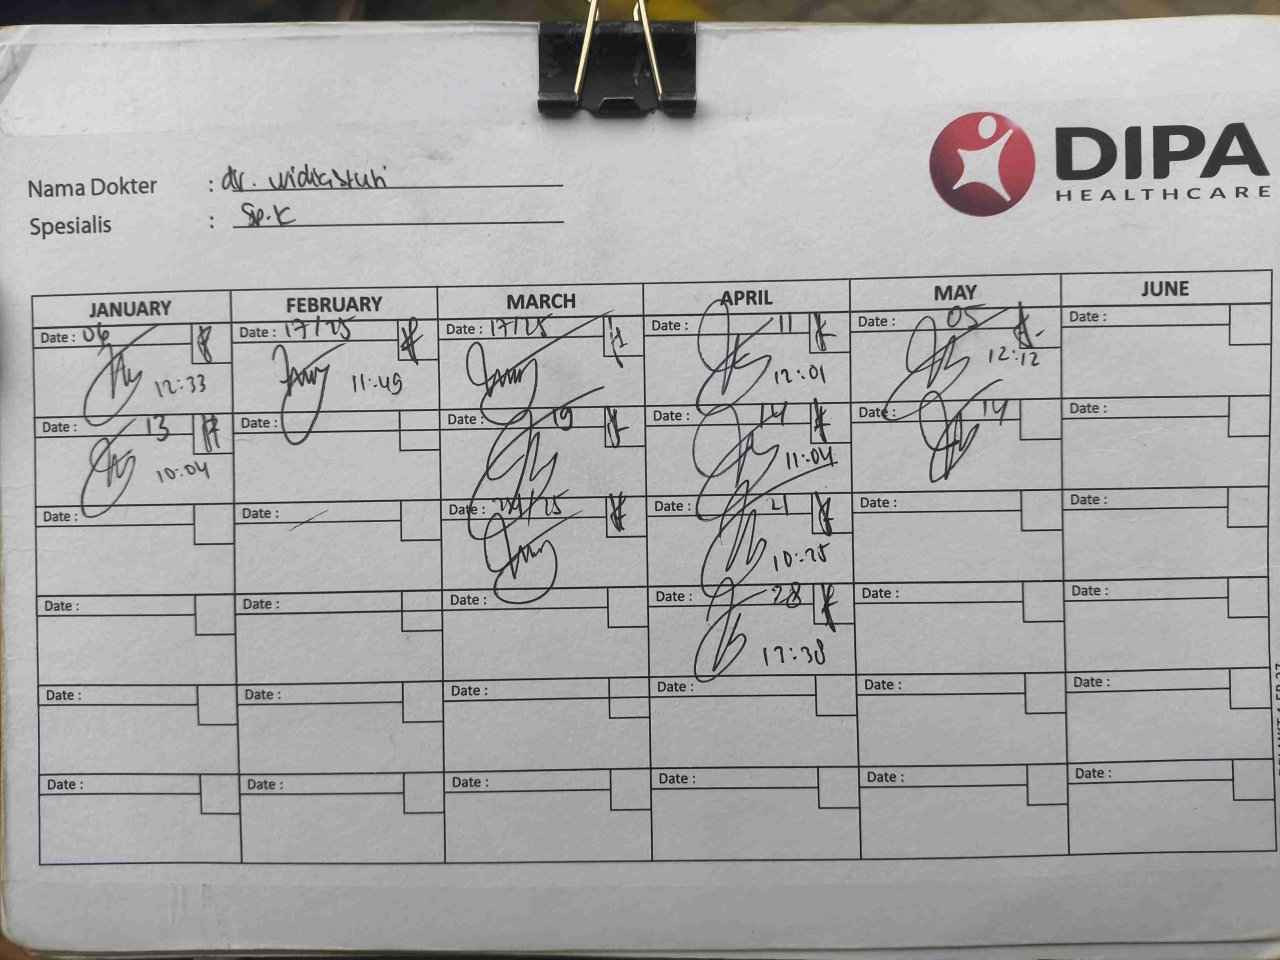 DIPA
HEALTHCARE
Nama Dokter : dr. Widiastuti
Spesialis : Sp.K
JANUARY FEBRUARY MARCH APRIL MAY JUNE
Date : 06 Date : 17/25 Date : 17/25 Date : 11 Date : 05 Date :
12:33 11:49 12:01 12:12
Date : 13 Date : Date : 19 Date : 14 Date : 14 Date :
10:04 11:04
Date : Date : Date : 24/25 Date : 21 Date : Date :
10:25
Date : Date : Date : Date : 28 Date : Date :
17:38
Date : Date : Date : Date : Date : Date :
Date : Date : Date : Date : Date : Date :